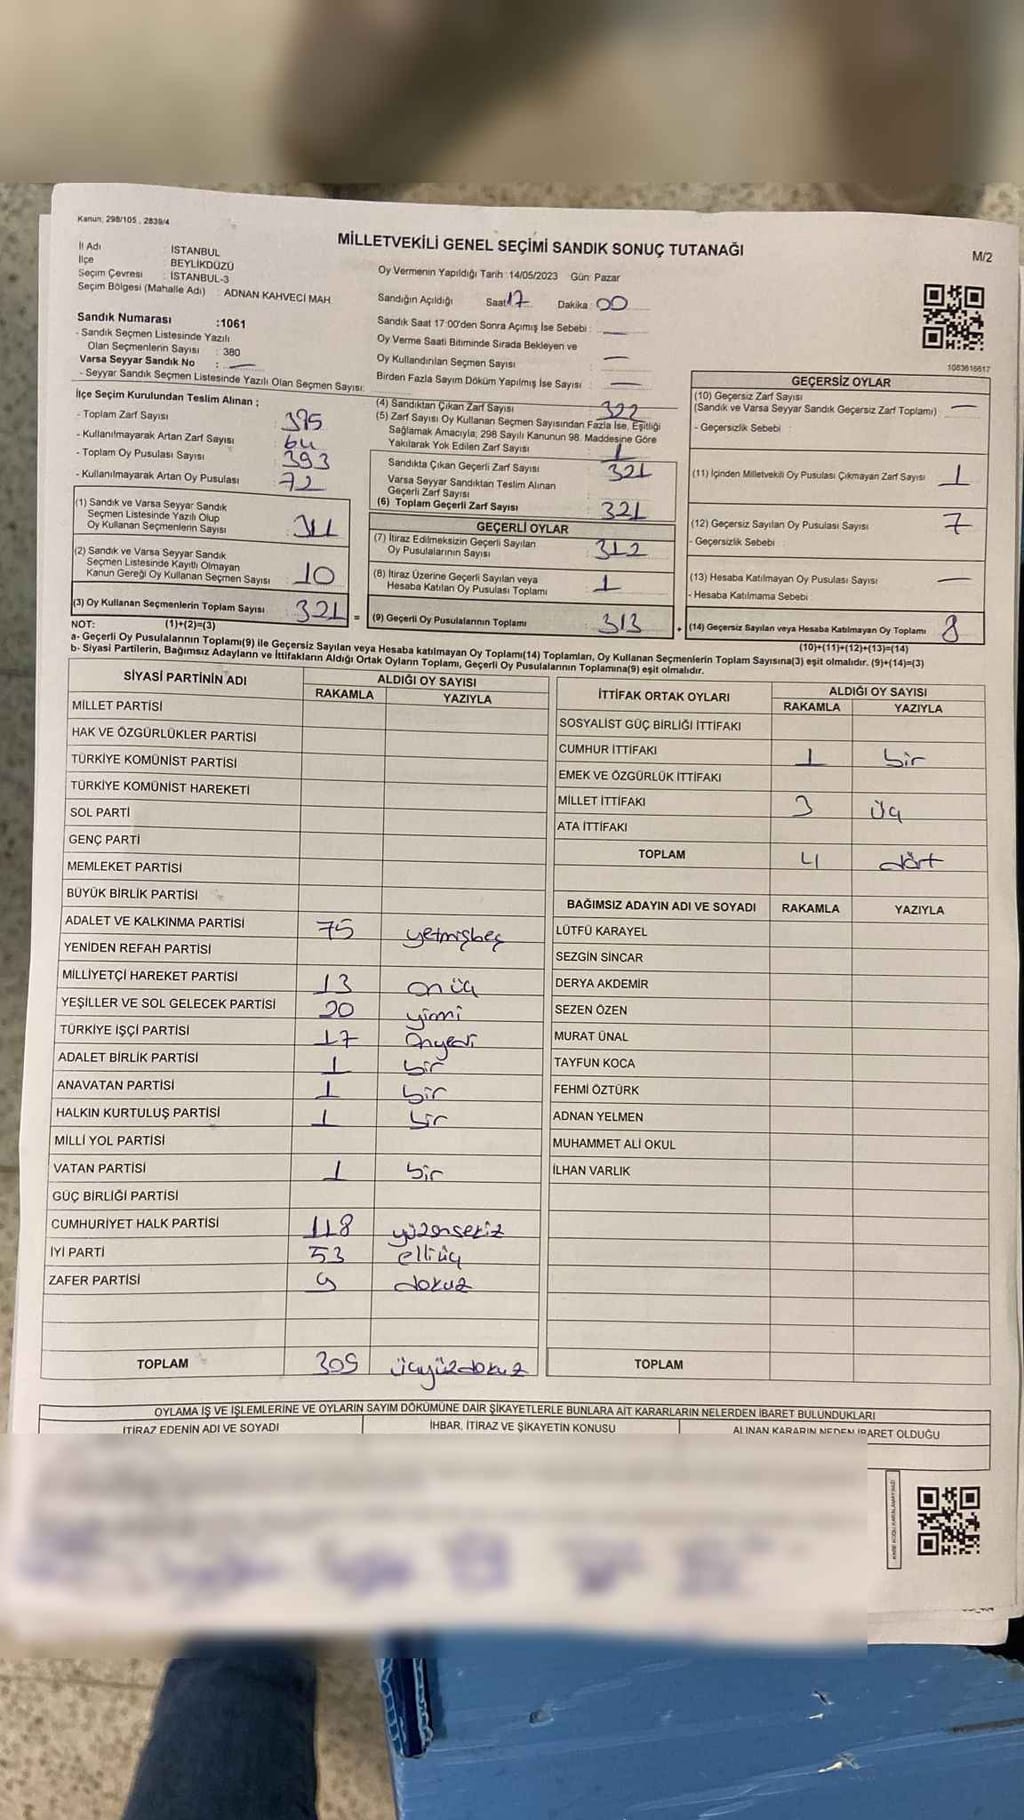 Kanun; 298/105 , 2839/4
MİLLETVEKİLİ GENEL SEÇİMİ SANDIK SONUÇ TUTANAĞI
M/2
İl Adı : İSTANBUL
İlçe : BEYLİKDÜZÜ
Seçim Çevresi : İSTANBUL-3
Seçim Bölgesi (Mahalle Adı) : ADNAN KAHVECİ MAH.
Oy Vermenin Yapıldığı Tarih :14/05/2023 Gün: Pazar
Sandığın Açıldığı Saat: 17 Dakika : 00
Sandık Saat 17:00'den Sonra Açımış İse Sebebi : —
Oy Verme Saati Bitiminde Sırada Bekleyen ve
Oy Kullandırılan Seçmen Sayısı : —
Birden Fazla Sayım Döküm Yapılmış İse Sayısı : —
Sandık Numarası :1061
- Sandık Seçmen Listesinde Yazılı
Olan Seçmenlerin Sayısı : 380
Varsa Seyyar Sandık No : —
- Seyyar Sandık Seçmen Listesinde Yazılı Olan Seçmen Sayısı:
İlçe Seçim Kurulundan Teslim Alınan ;
- Toplam Zarf Sayısı : 395
- Kullanılmayarak Artan Zarf Sayısı : 64
- Toplam Oy Pusulası Sayısı : 393
- Kullanılmayarak Artan Oy Pusulası : 72
(1) Sandık ve Varsa Seyyar Sandık
Seçmen Listesinde Yazılı Olup
Oy Kullanan Seçmenlerin Sayısı 311
(2) Sandık ve Varsa Seyyar Sandık
Seçmen Listesinde Kayıtlı Olmayan
Kanun Gereği Oy Kullanan Seçmen Sayısı 10
(3) Oy Kullanan Seçmenlerin Toplam Sayısı 321 =
(4) Sandıktan Çıkan Zarf Sayısı 322
(5) Zarf Sayısı Oy Kullanan Seçmen Sayısından Fazla İse, Eşitliği
Sağlamak Amacıyla; 298 Sayılı Kanunun 98. Maddesine Göre
Yakılarak Yok Edilen Zarf Sayısı 1
Sandıkta Çıkan Geçerli Zarf Sayısı 321
Varsa Seyyar Sandıktan Teslim Alınan
Geçerli Zarf Sayısı
(6) Toplam Geçerli Zarf Sayısı 321
GEÇERLİ OYLAR
(7) İtiraz Edilmeksizin Geçerli Sayılan
Oy Pusulalarının Sayısı 312
(8) İtiraz Üzerine Geçerli Sayılan veya
Hesaba Katılan Oy Pusulası Toplamı 1
(9) Geçerli Oy Pusulalarının Toplamı 313 +
1083616617
GEÇERSİZ OYLAR
(10) Geçersiz Zarf Sayısı
(Sandık ve Varsa Seyyar Sandık Geçersiz Zarf Toplamı) —
- Geçersizlik Sebebi :
(11) İçinden Milletvekili Oy Pusulası Çıkmayan Zarf Sayısı 1
(12) Geçersiz Sayılan Oy Pusulası Sayısı 7
- Geçersizlik Sebebi :
(13) Hesaba Katılmayan Oy Pusulası Sayısı —
- Hesaba Katılmama Sebebi :
(14) Geçersiz Sayılan veya Hesaba Katılmayan Oy Toplamı 8
NOT: (1)+(2)=(3)
(10)+(11)+(12)+(13)=(14)
a- Geçerli Oy Pusulalarının Toplamı(9) ile Geçersiz Sayılan veya Hesaba Katılmayan Oy Toplamı(14) Toplamları, Oy Kullanan Seçmenlerin Toplam Sayısına(3) eşit olmalıdır. (9)+(14)=(3)
b- Siyasi Partilerin, Bağımsız Adayların ve İttifakların Aldığı Ortak Oyların Toplamı, Geçerli Oy Pusulalarının Toplamına(9) eşit olmalıdır.
SİYASİ PARTİNİN ADI ALDIĞI OY SAYISI
RAKAMLA YAZIYLA
MİLLET PARTİSİ
HAK VE ÖZGÜRLÜKLER PARTİSİ
TÜRKİYE KOMÜNİST PARTİSİ
TÜRKİYE KOMÜNİST HAREKETİ
SOL PARTİ
GENÇ PARTİ
MEMLEKET PARTİSİ
BÜYÜK BİRLİK PARTİSİ
ADALET VE KALKINMA PARTİSİ 75 yetmişbeş
YENİDEN REFAH PARTİSİ
MİLLİYETÇİ HAREKET PARTİSİ 13 onüç
YEŞİLLER VE SOL GELECEK PARTİSİ 20 yirmi
TÜRKİYE İŞÇİ PARTİSİ 17 Onyedi
ADALET BİRLİK PARTİSİ 1 bir
ANAVATAN PARTİSİ 1 bir
HALKIN KURTULUŞ PARTİSİ 1 bir
MİLLİ YOL PARTİSİ
VATAN PARTİSİ 1 bir
GÜÇ BİRLİĞİ PARTİSİ
CUMHURİYET HALK PARTİSİ 118 yüzonsekiz
İYİ PARTİ 53 elliüç
ZAFER PARTİSİ 9 dokuz
TOPLAM 309 üçyüzdokuz
İTTİFAK ORTAK OYLARI ALDIĞI OY SAYISI
RAKAMLA YAZIYLA
SOSYALİST GÜÇ BİRLİĞİ İTTİFAKI
CUMHUR İTTİFAKI 1 bir
EMEK VE ÖZGÜRLÜK İTTİFAKI
MİLLET İTTİFAKI 3 üç
ATA İTTİFAKI
TOPLAM 4 dört
BAĞIMSIZ ADAYIN ADI VE SOYADI RAKAMLA YAZIYLA
LÜTFÜ KARAYEL
SEZGİN SİNCAR
DERYA AKDEMİR
SEZEN ÖZEN
MURAT ÜNAL
TAYFUN KOCA
FEHMİ ÖZTÜRK
ADNAN YELMEN
MUHAMMET ALİ OKUL
İLHAN VARLIK
TOPLAM
OYLAMA İŞ VE İŞLEMLERİNE VE OYLARIN SAYIM DÖKÜMÜNE DAİR ŞİKAYETLERLE BUNLARA AİT KARARLARIN NELERDEN İBARET BULUNDUKLARI
İTİRAZ EDENİN ADI VE SOYADI İHBAR, İTİRAZ VE ŞİKAYETİN KONUSU ALINAN KARARIN NEDEN İBARET OLDUĞU